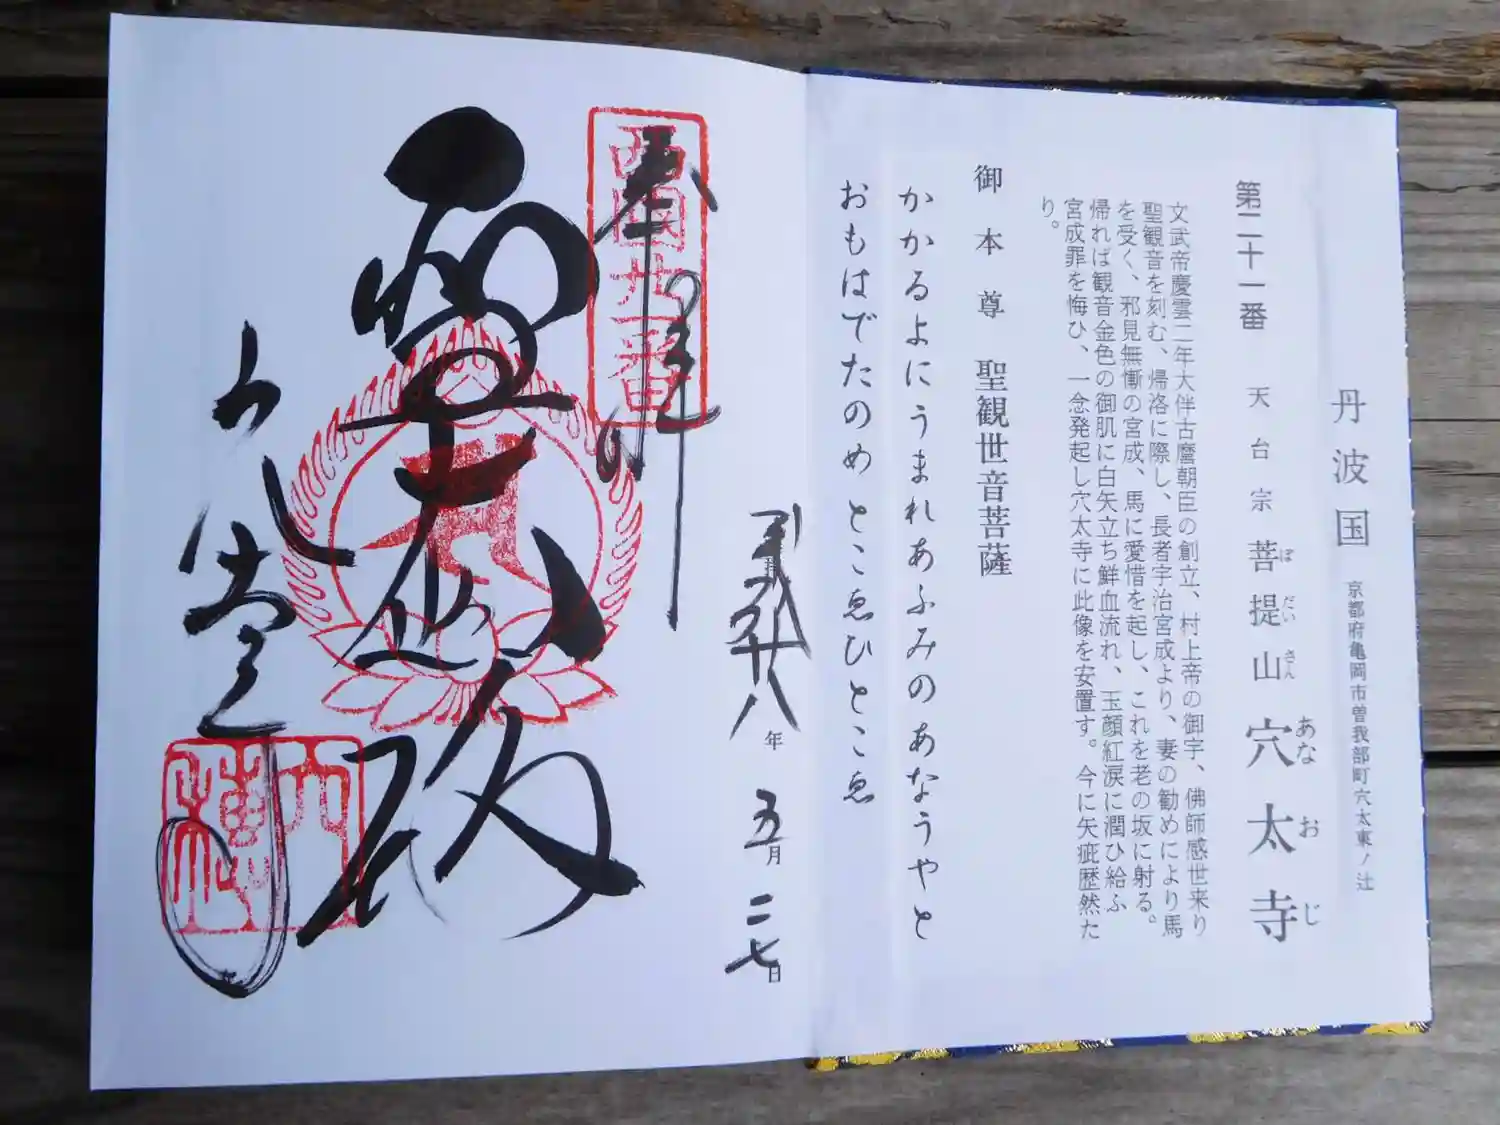 丹波国 京都府亀岡市曽我部町穴太東ノ辻
第二十一番 天台宗 菩提山 穴太寺
ぼだいさん あなおじ
文武帝慶雲二年大伴古麿朝臣の創立、村上帝の御宇、佛師感世来り
聖観音を刻む、帰洛に際し、長者宇治宮成より、妻の勧めにより馬
を受く、邪見無慚の宮成、馬に愛惜を起し、これを老の坂に射る。
帰れば観音金色の御肌に白矢立ち鮮血流れ、玉顔紅涙に潤ひ給ふ
宮成罪を悔ひ、一念発起し穴太寺に此像を安置す。今に矢疵歴然た
り。
御本尊 聖観世音菩薩
かかるよにうまれあふみのあなうやと
おもはでたのめ とこゑひとこゑ
廿八年 五月 二七日
奉拝
西国廿一番
聖大悲殿